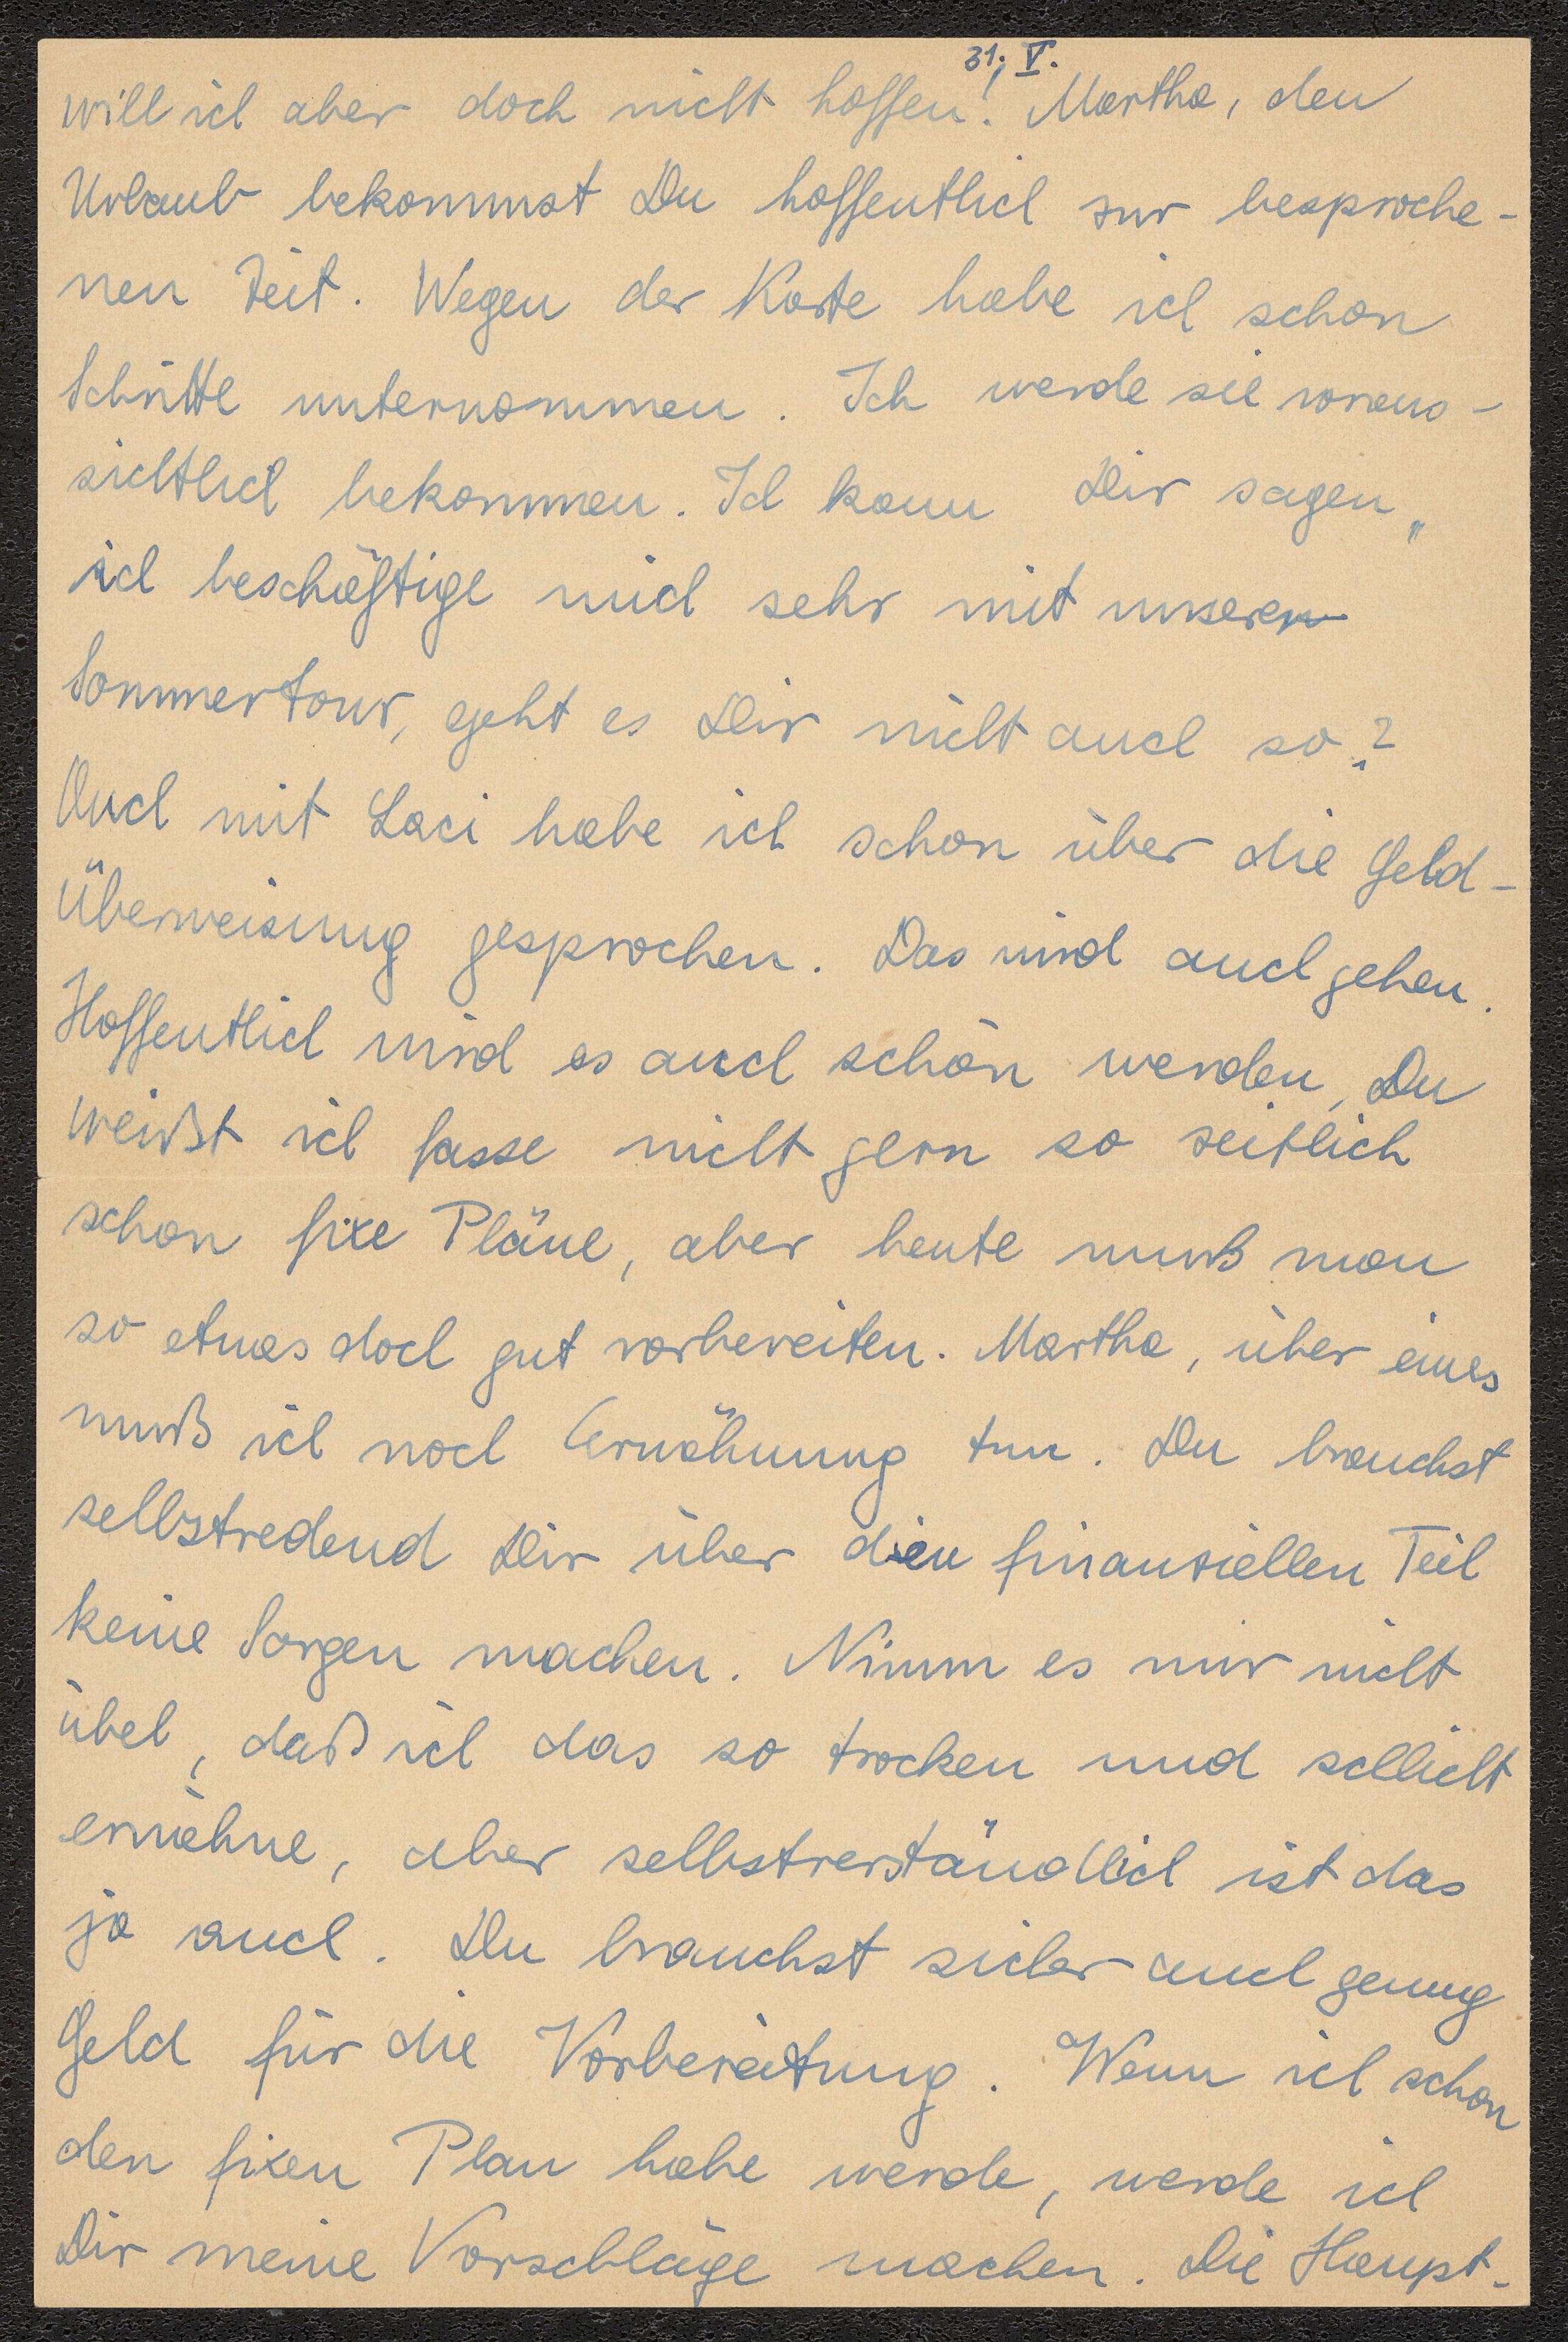 31. V.
will ich aber doch nicht hoffen! Martha, den
Urlaub bekommst Du hoffentlich zur besproche-
nen Zeit. Wegen der Karte habe ich schon
Schritte unternommen. Ich werde sie voraus-
sichtlich bekommen. Ich kann Dir sagen,,
ich beschäftige mich sehr mit unserer
Sommertour, geht es Dir nicht auch so?
Auch mit Laci habe ich schon über die Geld-
Überweisung gesprochen. Das wird auch gehen.
Hoffentlich wird es auch schön werden, Du
weißt ich fasse nicht gern so zeitlich
schon fixe Pläne, aber heute muß man
so etwas doch gut vorbereiten. Martha, über eines
muß ich noch Erwähnung tun. Du brauchst
selbstredend Dir über den finanziellen Teil
keine Sorgen machen. Nimm es mir nicht
übel, daß ich das so trocken und schlicht
erwähne, aber selbstverständlich ist das
ja auch. Du brauchst sicher auch genug
Geld für die Vorbereitung. Wenn ich schon
den fixen Plan habe werde, werde ich
Dir meine Vorschläge machen. Die Haupt-